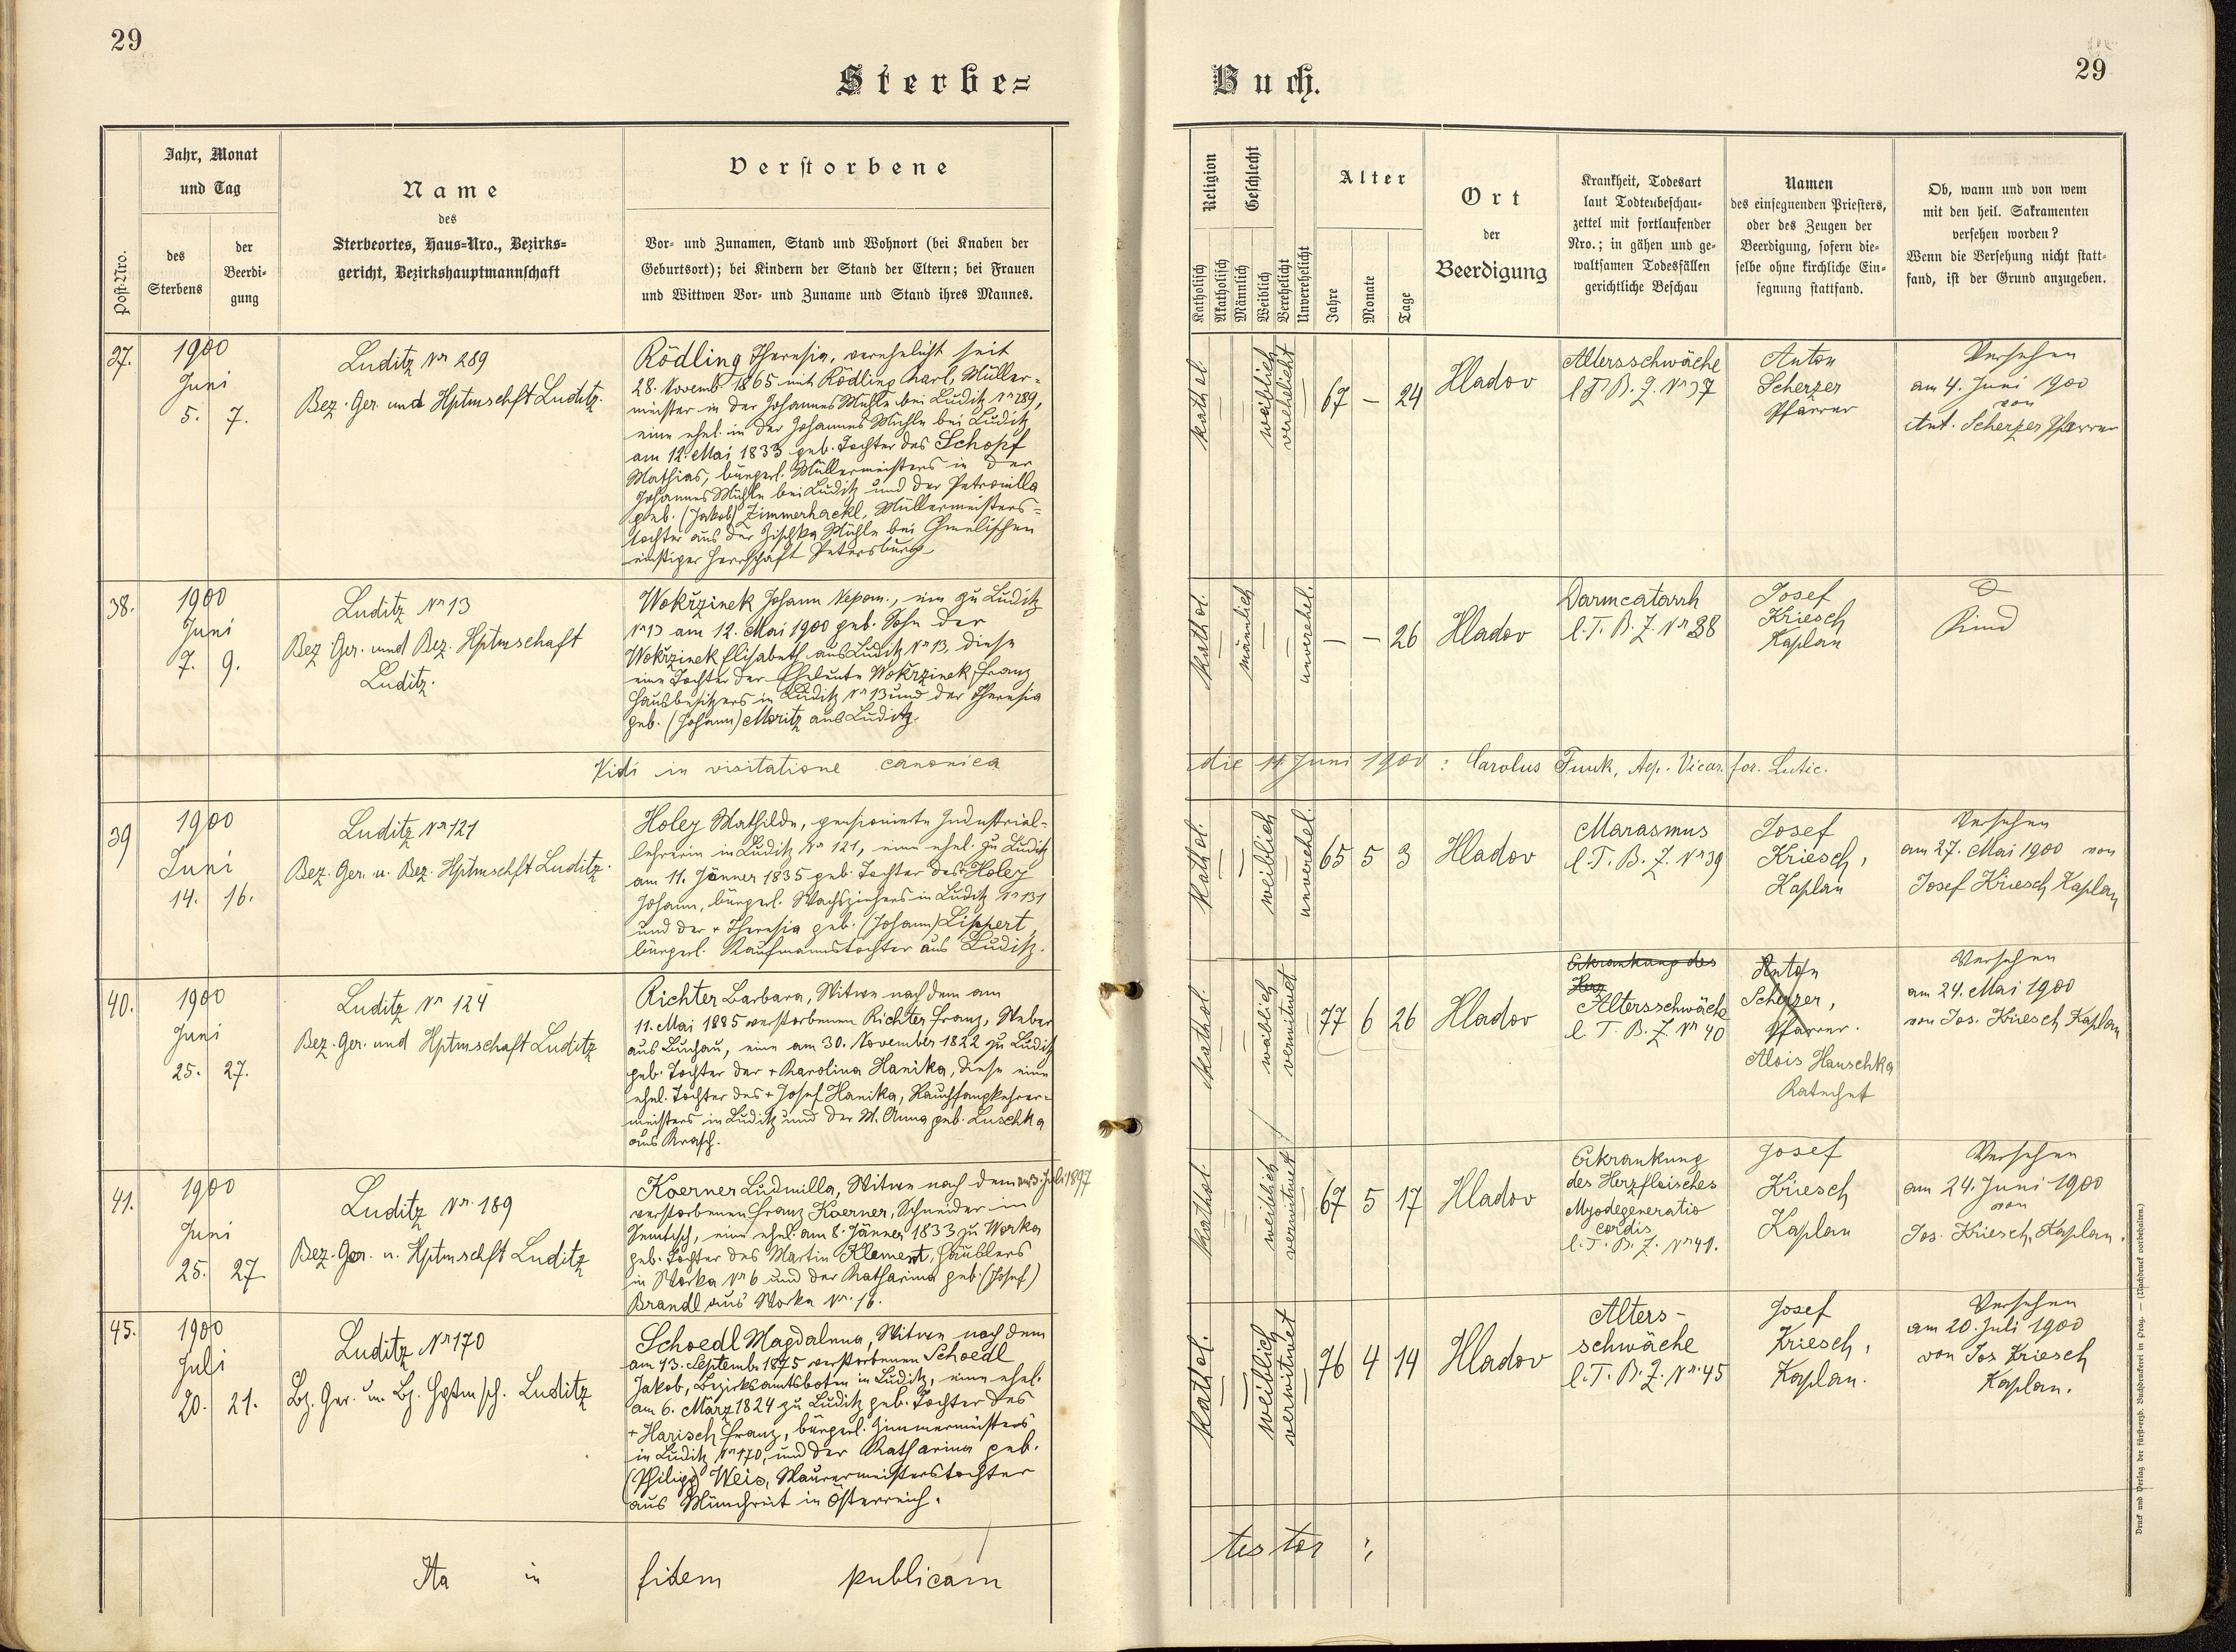 29
29
Sterbe=
Buch.
Post-Nro.
Jahr, Monat
und Tag
des
Sterbens
der
Beerdi-
gung
Name
des
Sterbeortes, Haus-Nro., Bezirks-
gericht, Bezirkshauptmannschaft
Verstorbene
Vor- und Zunamen, Stand und Wohnort (bei Knaben der
Geburtsort); bei Kindern der Stand der Eltern; bei Frauen
und Wittwen Vor- und Zuname und Stand ihres Mannes.
Religion
Katholisch
Akatholisch
Geschlecht
Männlich
Weiblich
Verehelicht
Unverehelicht
Alter
Jahre
Monate
Tage
Ort
der
Beerdigung
Krankheit, Todesart
laut Todtenbeschau-
zettel mit fortlaufender
Nro.; in gähen und ge-
waltsamen Todesfällen
gerichtliche Beschau
Namen
des einsegnenden Priesters,
oder des Zeugen der
Beerdigung, sofern die-
selbe ohne kirchliche Ein-
segnung stattfand.
Ob, wann und von wem
mit den heil. Sakramenten
versehen worden?
Wenn die Versehung nicht statt-
fand, ist der Grund anzugeben.
37.
1900
Juni
5. 7.
Luditz Nr 289
Bez. Ger. und Hptmschft Luditz.
Rödling Theresia, verehelicht seit
28. Novemb. 1865 mit Rödling Karl, Müller-
meister in der Johannes Mühle bei Luditz Nr 289,
eine ehel. in der Johannes Mühle bei Luditz
am 12. Mai 1833 geb. Tochter des Schopf
Mathias, bürgerl. Müllermeisters in der
Johannes Mühle bei Luditz und der Petronilla
geb. (Jakob) Zimmerhackl, Müllermeisters-
tochter aus der Zischka Mühle bei Chmelischen
einstiger Herrschaft Petersburg
kathol.
weiblich
verehelicht
67 – 24
Hladov
Altersschwäche
l. T. B. Z. Nr 37
Anton
Scherzer
Pfarrer
Versehen
am 4. Juni 1900
von
Ant. Scherzer Pfarrer
38.
1900
Juni
7. 9.
Luditz Nr 13
Bez. Ger. und Bez. Hptmschaft
Luditz.
Wokřzinek Johann Nepom., ein zu Luditz
Nr 13 am 12. Mai 1900 geb. Sohn der
Wokřzinek Elisabeth aus Luditz Nr 13, diese
eine Tochter der Eheleute Wokřzinek Franz
Hausbesitzers in Luditz Nr 13 und der Theresia
geb. (Johann) Moritz aus Luditz.
kathol.
männlich
unverehel.
– – 26
Hladov
Darmcatarrh
l. T. B. Z. Nr 38
Josef
Kriesch
Kaplan
Kind
Vidi in visitatione canonica
die 11 Juni 1900 : Carolus Funk, Aep. Vicar. for. Lutic.
39
1900
Juni
14. 16.
Luditz Nr 121
Bez. Ger. u. Bez. Hptmschft Luditz.
Holey Mathilde, pensionierte Industrial-
lehrerin in Luditz Nr 121, eine ehel. zu Luditz
am 11. Jänner 1835 geb. Tochter des Holey
Johann, bürgerl. Wachsziehers in Luditz Nr 131
und der + Theresia geb. (Johann) Lippert,
bürgerl. Kaufmannstochter aus Luditz.
kathol.
weiblich
unverehel.
65 5 3
Hladov
Marasmus
l. T. B. Z. Nr 39
Josef
Kriesch,
Kaplan
Versehen
am 27. Mai 1900 von
Josef Kriesch Kaplan
40.
1900
Juni
25. 27.
Luditz Nr 124
Bez. Ger. und Hptmschaft Luditz
Richter Barbara, Witwe nach dem am
11. Mai 1885 verstorbenen Richter Franz, Weber
aus Luchau, eine am 30. November 1822 zu Luditz
geb. Tochter der + Karolina Hanika, diese eine
ehel. Tochter des + Josef Hanika, Rauchfangkehrer-
meisters in Luditz und der M. Anna geb. Luschka
aus Krasch.
kathol.
weiblich
verwitwet
77 6 26
Hladov
Erkrankung des
Herz
Altersschwäche
l. T. B. Z. Nr 40
Anton
Scherzer,
Pfarrer.
Alois Hauschka
Katechet
Versehen
am 24. Mai 1900
von Jos. Kriesch Kaplan
41.
1900
Juni
25. 27
Luditz Nr. 189
Bez. Ger. u. Hptmschft Luditz
Koerner Ludmilla, Witwe nach dem am 3. Juli 1897
verstorbenen Franz Koerner, Schneider in
eine ehel. am 8. Jänner 1833 zu Worka
geb. Tochter des Martin Klement, Häuslers
in Worka Nr 6 und der Katharina geb. (Josef)
Brandl aus Worka Nr. 16.
kathol.
weiblich
verwitwet
67 5 17
Hladov
Erkrankung
des Herzfleisches
Myodegeneratio
cordis
l. T. B. Z. Nr 41.
Josef
Kriesch
Kaplan
Versehen
am 24. Juni 1900
von
Jos. Kriesch, Kaplan.
45.
1900
Juli
20. 21.
Luditz Nr 170
Bz. Ger. u. Bz. Hptmsch. Luditz
Schoedl Magdalena, Witwe nach dem
am 13. Septemb. 1875 verstorbenen Schoedl
Jakob, Bezirksamtsboten in Luditz, eine ehel.
am 6. März 1824 zu Luditz geb. Tochter des
+ Harisch Franz, bürgerl. Zimmermeisters
in Luditz Nr 170, und der Katharina geb.
(Philipp) Weis, Maurermeisterstochter
aus Münchreit in Österreich.
kathol.
weiblich
verwitwet
76 4 14
Hladov
Alters-
schwäche
l. T. B. Z. Nr. 45
Josef
Kriesch,
Kaplan.
Versehen
am 20. Juli 1900
von Jos Kriesch
Kaplan.
Ita in fidem publicam
testor
Druck und Verlag der fürst-erzb. Buchdruckerei in Prag. — (Nachdruck vorbehalten.)